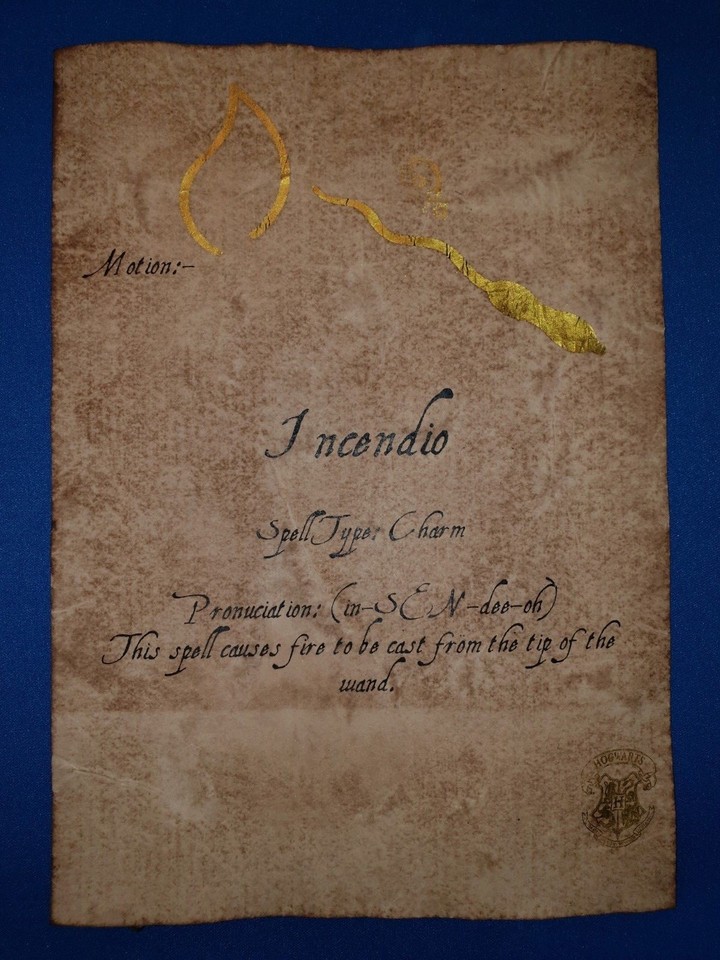 Motion:-
Incendio
Spell Type: Charm
Pronuciation: (in-SEN-dee-oh)
This spell causes fire to be cast from the tip of the
wand.
HOGWARTS
H